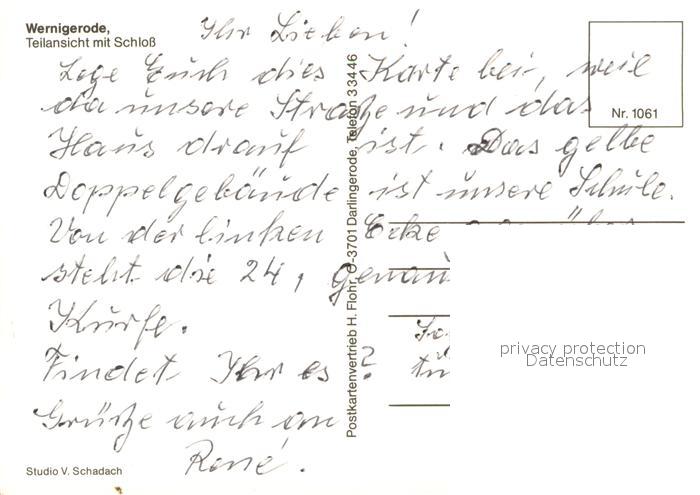 Wernigerode,
Teilansicht mit Schloß
Ihr Lieben!
Lege Euch dies Karte bei, weil
da unsere Straße und das
Haus drauf ist. Das gelbe
Doppelgebäude ist unsere Schule.
Von der linken Ecke
steht die 24, genau
Kurfe.
Findet Ihr es?
Grüße auch an
René.
Nr. 1061
Postkartenvertrieb H. Flohr, O-3701 Darlingerode, Telefon 3 34 46
privacy protection
Datenschutz
Studio V. Schadach